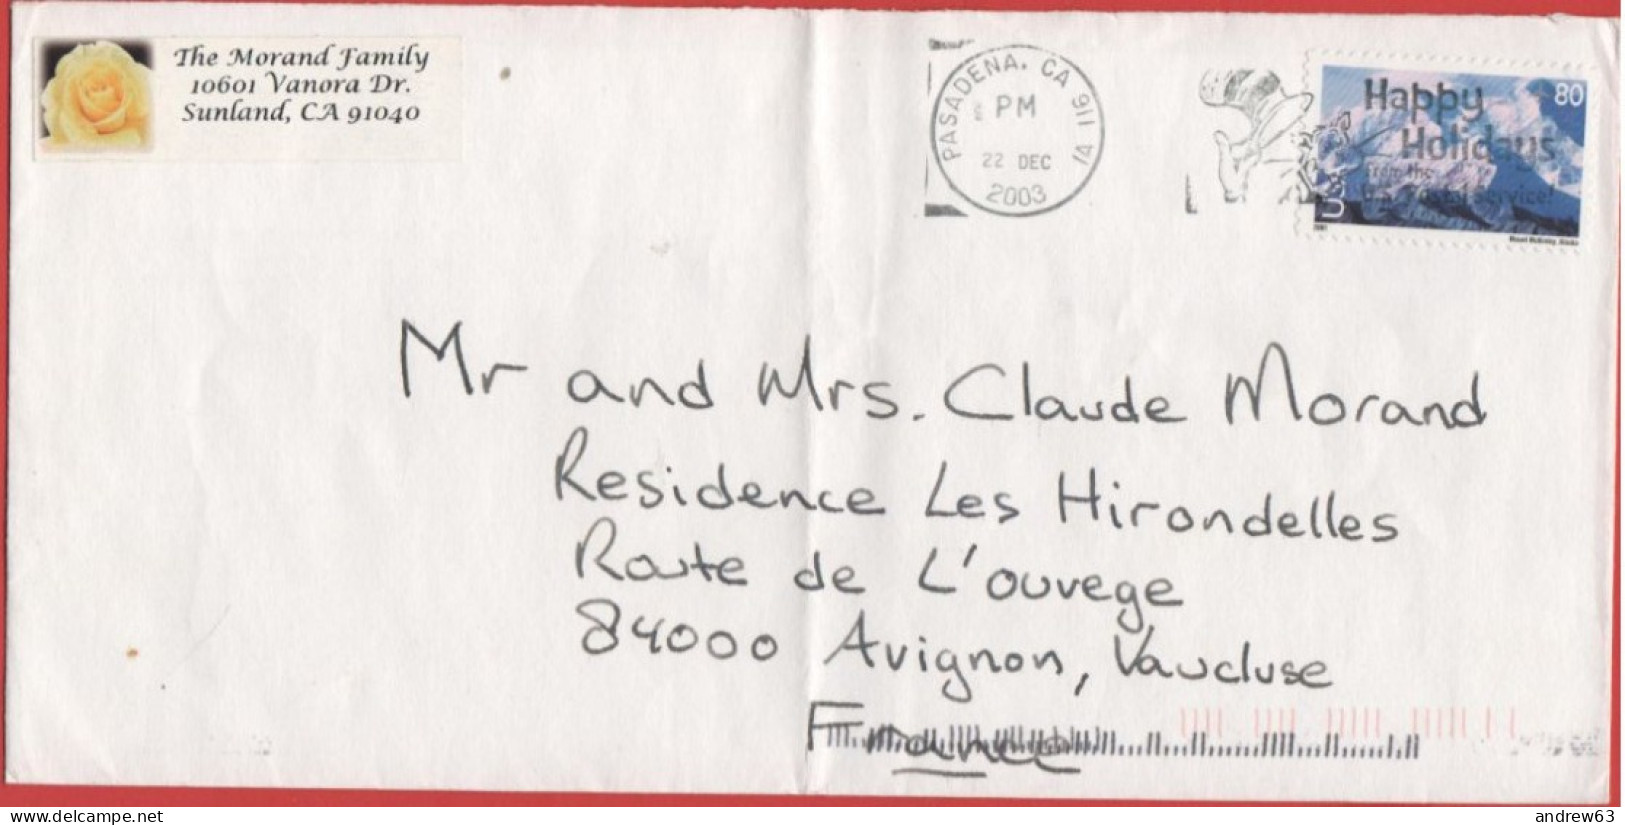 The Morand Family
10601 Vanora Dr.
Sunland, CA 91040
PASADENA, CA 911
PM
22 DEC
2003
1A
Happy
Holidays
from the
U.S. Postal Service!
80
USA
2001
Mount McKinley, Alaska
Mr and Mrs. Claude Morand
Residence Les Hirondelles
Route de L'ouvege
84000 Avignon, Vaucluse
France
delcampe.net
andrew63